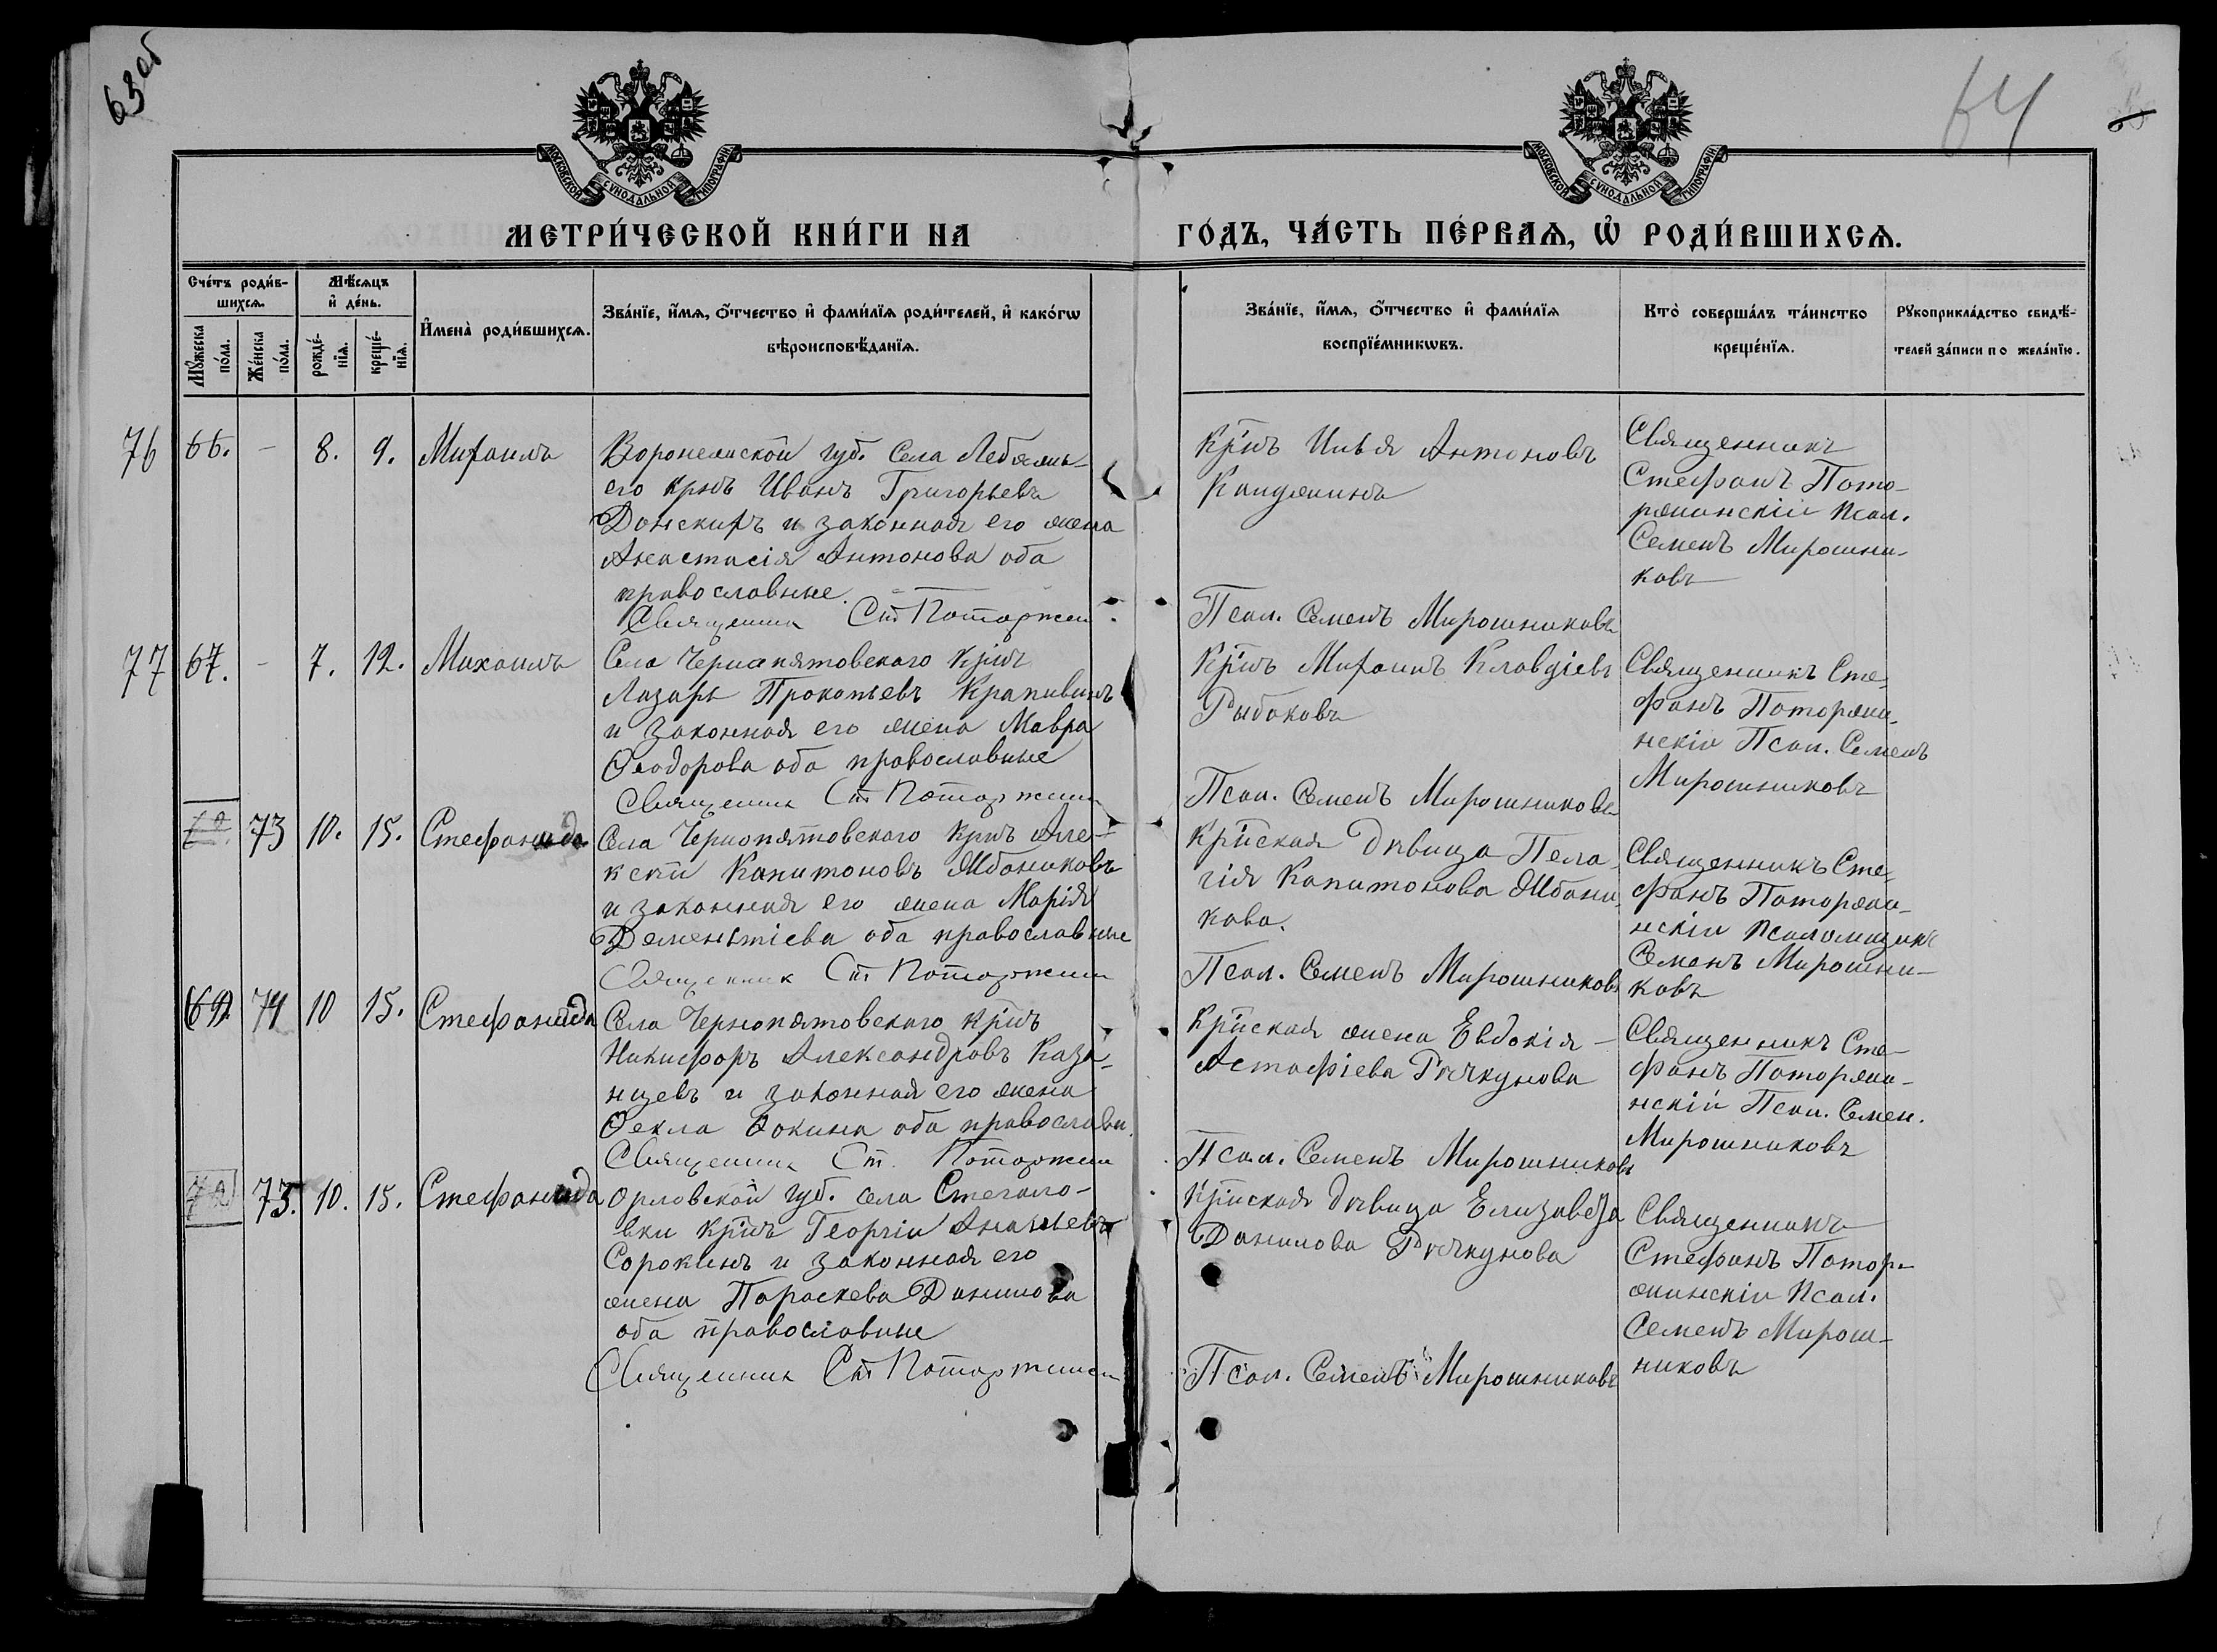 63 об
64
МОСКОВСКОЙ СѴНОДАЛЬНОЙ ТИПОГРАФІИ
МОСКОВСКОЙ СѴНОДАЛЬНОЙ ТИПОГРАФІИ
МЕТРИ́ЧЕСКОЙ КНИ́ГИ НА
ГО́ДЪ, ЧА́СТЬ ПЕ́РВАѦ, Ѽ РОДИ́ВШИХСѦ.
Сче́тъ роди́в-
шихсѧ.
Мꙋ́жеска по́ла.
Же́нска по́ла.
Мѣ́сѧцъ
и҆ де́нь.
рожде́-
нїѧ.
креще́-
нїѧ.
И҆мена̀ роди́вшихсѧ.
Зва́нїе, и҆́мѧ, ѻ҆́тчество и҆ фами́лїѧ роди́телей, и҆ како́гѡ
вѣроисповѣ́данїѧ.
Зва́нїе, и҆́мѧ, ѻ҆́тчество и҆ фами́лїѧ
воспрїе́мникѡвъ.
Кто̀ соверша́лъ та́инство
креще́нїѧ.
Рꙋкоприкла́дство свидѣ́-
телей за́писи по жела́нїю.
76 66. - 8. 9. Михаилъ
Воронежской губ. Села Лебяжь-
его крнъ Иванъ Григорьевъ
Донскихъ и законная его жена
Анастасія Антонова оба
православные.
Священник Ст Поторжин
Крнъ Илья Антоновъ
Псал. Семенъ Мирошниковъ
Священникъ
Стефанъ Пото-
ржинскій Псал.
Семенъ Мирошни-
ковъ
77 67. - 7. 12. Михаилъ
Села Чернопятовскаго крнъ
Лазарь Прокопьевъ Крапивинъ
и законная его жена Мавра
Ѳеодорова оба православные
Священник Ст Поторжин
Крнъ Михаилъ Клавдіевъ
Рыбаковъ
Псал. Семенъ Мирошниковъ
Священникъ Сте-
фанъ Поторжи-
нскій Псал. Семенъ
Мирошниковъ
73 10. 15. Стефанида
Села Чернопятовскаго крнъ Але-
ксѣй Капитоновъ Жбаниковъ
и законная его жена Марія
Дементіева оба православные
Священник Ст Поторжин
Крнская дѣвица Пела-
гія Капитонова Жбани-
кова.
Псал. Семенъ Мирошниковъ
Священникъ Сте-
фанъ Поторжи-
нскій псаломщикъ
Семенъ Мирошни-
ковъ
69. 74 10 15. Стефанида
Села Чернопятовскаго крнъ
Никифоръ Александровъ Каза-
нцевъ и законная его жена
Ѳекла Фокина оба православн.
Священник Ст. Поторжин
Крнская жена Евдокія
Астафіева Рѣчкунова
Псал. Семенъ Мирошниковъ
Священникъ Сте-
фанъ Поторжи-
нскій Псал. Семен.
Мирошниковъ
75. 10. 15. Стефанида
Орловской губ. села Стегало-
вки крнъ Георгій Ананіевъ
Сорокинъ и законная его
жена Параскева Данилова
оба православные
Священник Ст Поторжинск
Крнская дѣвица Елизавета
Данилова Рѣчкунова
Псал. Семенъ Мирошниковъ
Священникъ
Стефанъ Потор-
жинскій Псал.
Семенъ Мирош-
никовъ